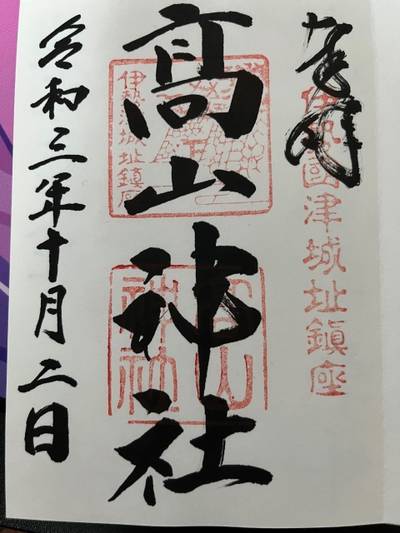 奉拝
伊勢國津城址鎮座
髙山神社
伊勢津城址鎮座
高山神社
令和三年十月二日